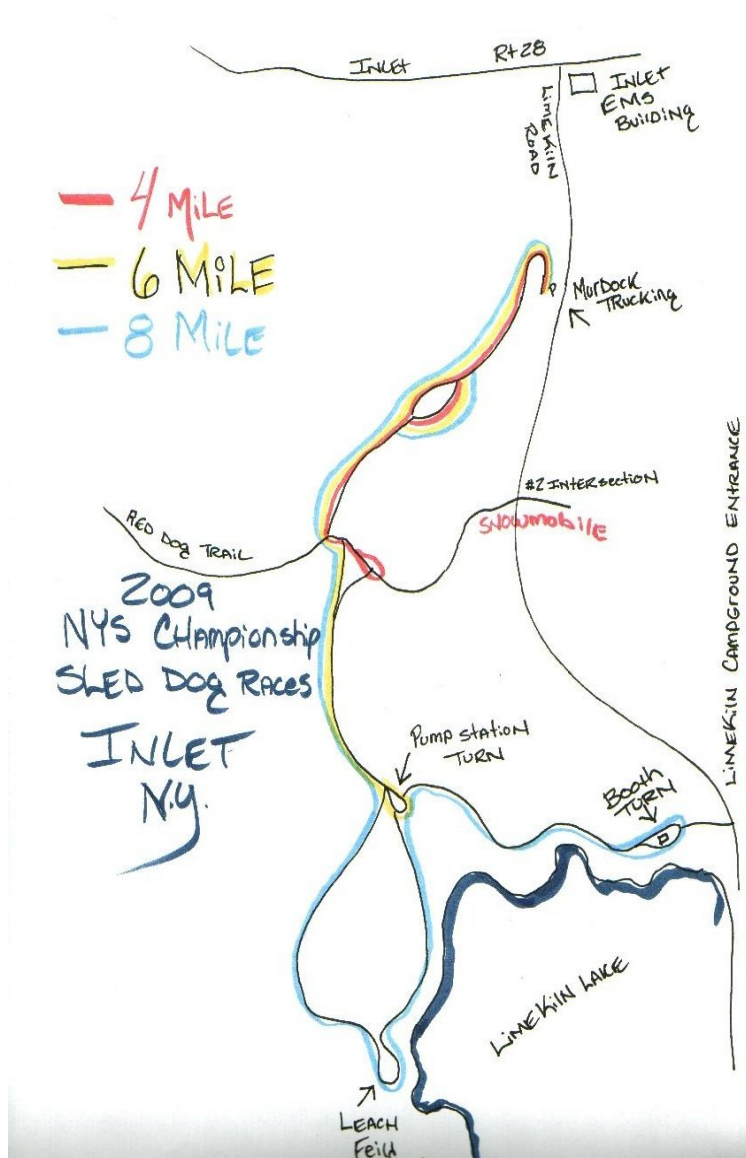 INLET
Rt 28
INLET
EMS
BuilDing
LiMEKilN
ROAD
4 MilE
6 MilE
8 MilE
P
MurDock
TRUCKing
#2 INTERSection
SNOWMObilE
RED DOg TRAiL
LiMEKilN CAMPGROUND ENTRANCE
2009
NYS CHAmpionship
SLED DOg RAcES
INLET
N.y.
Pump StatiON
TURN
Booth
TURN
LiMEKilN LAKE
LEACH
FEilD